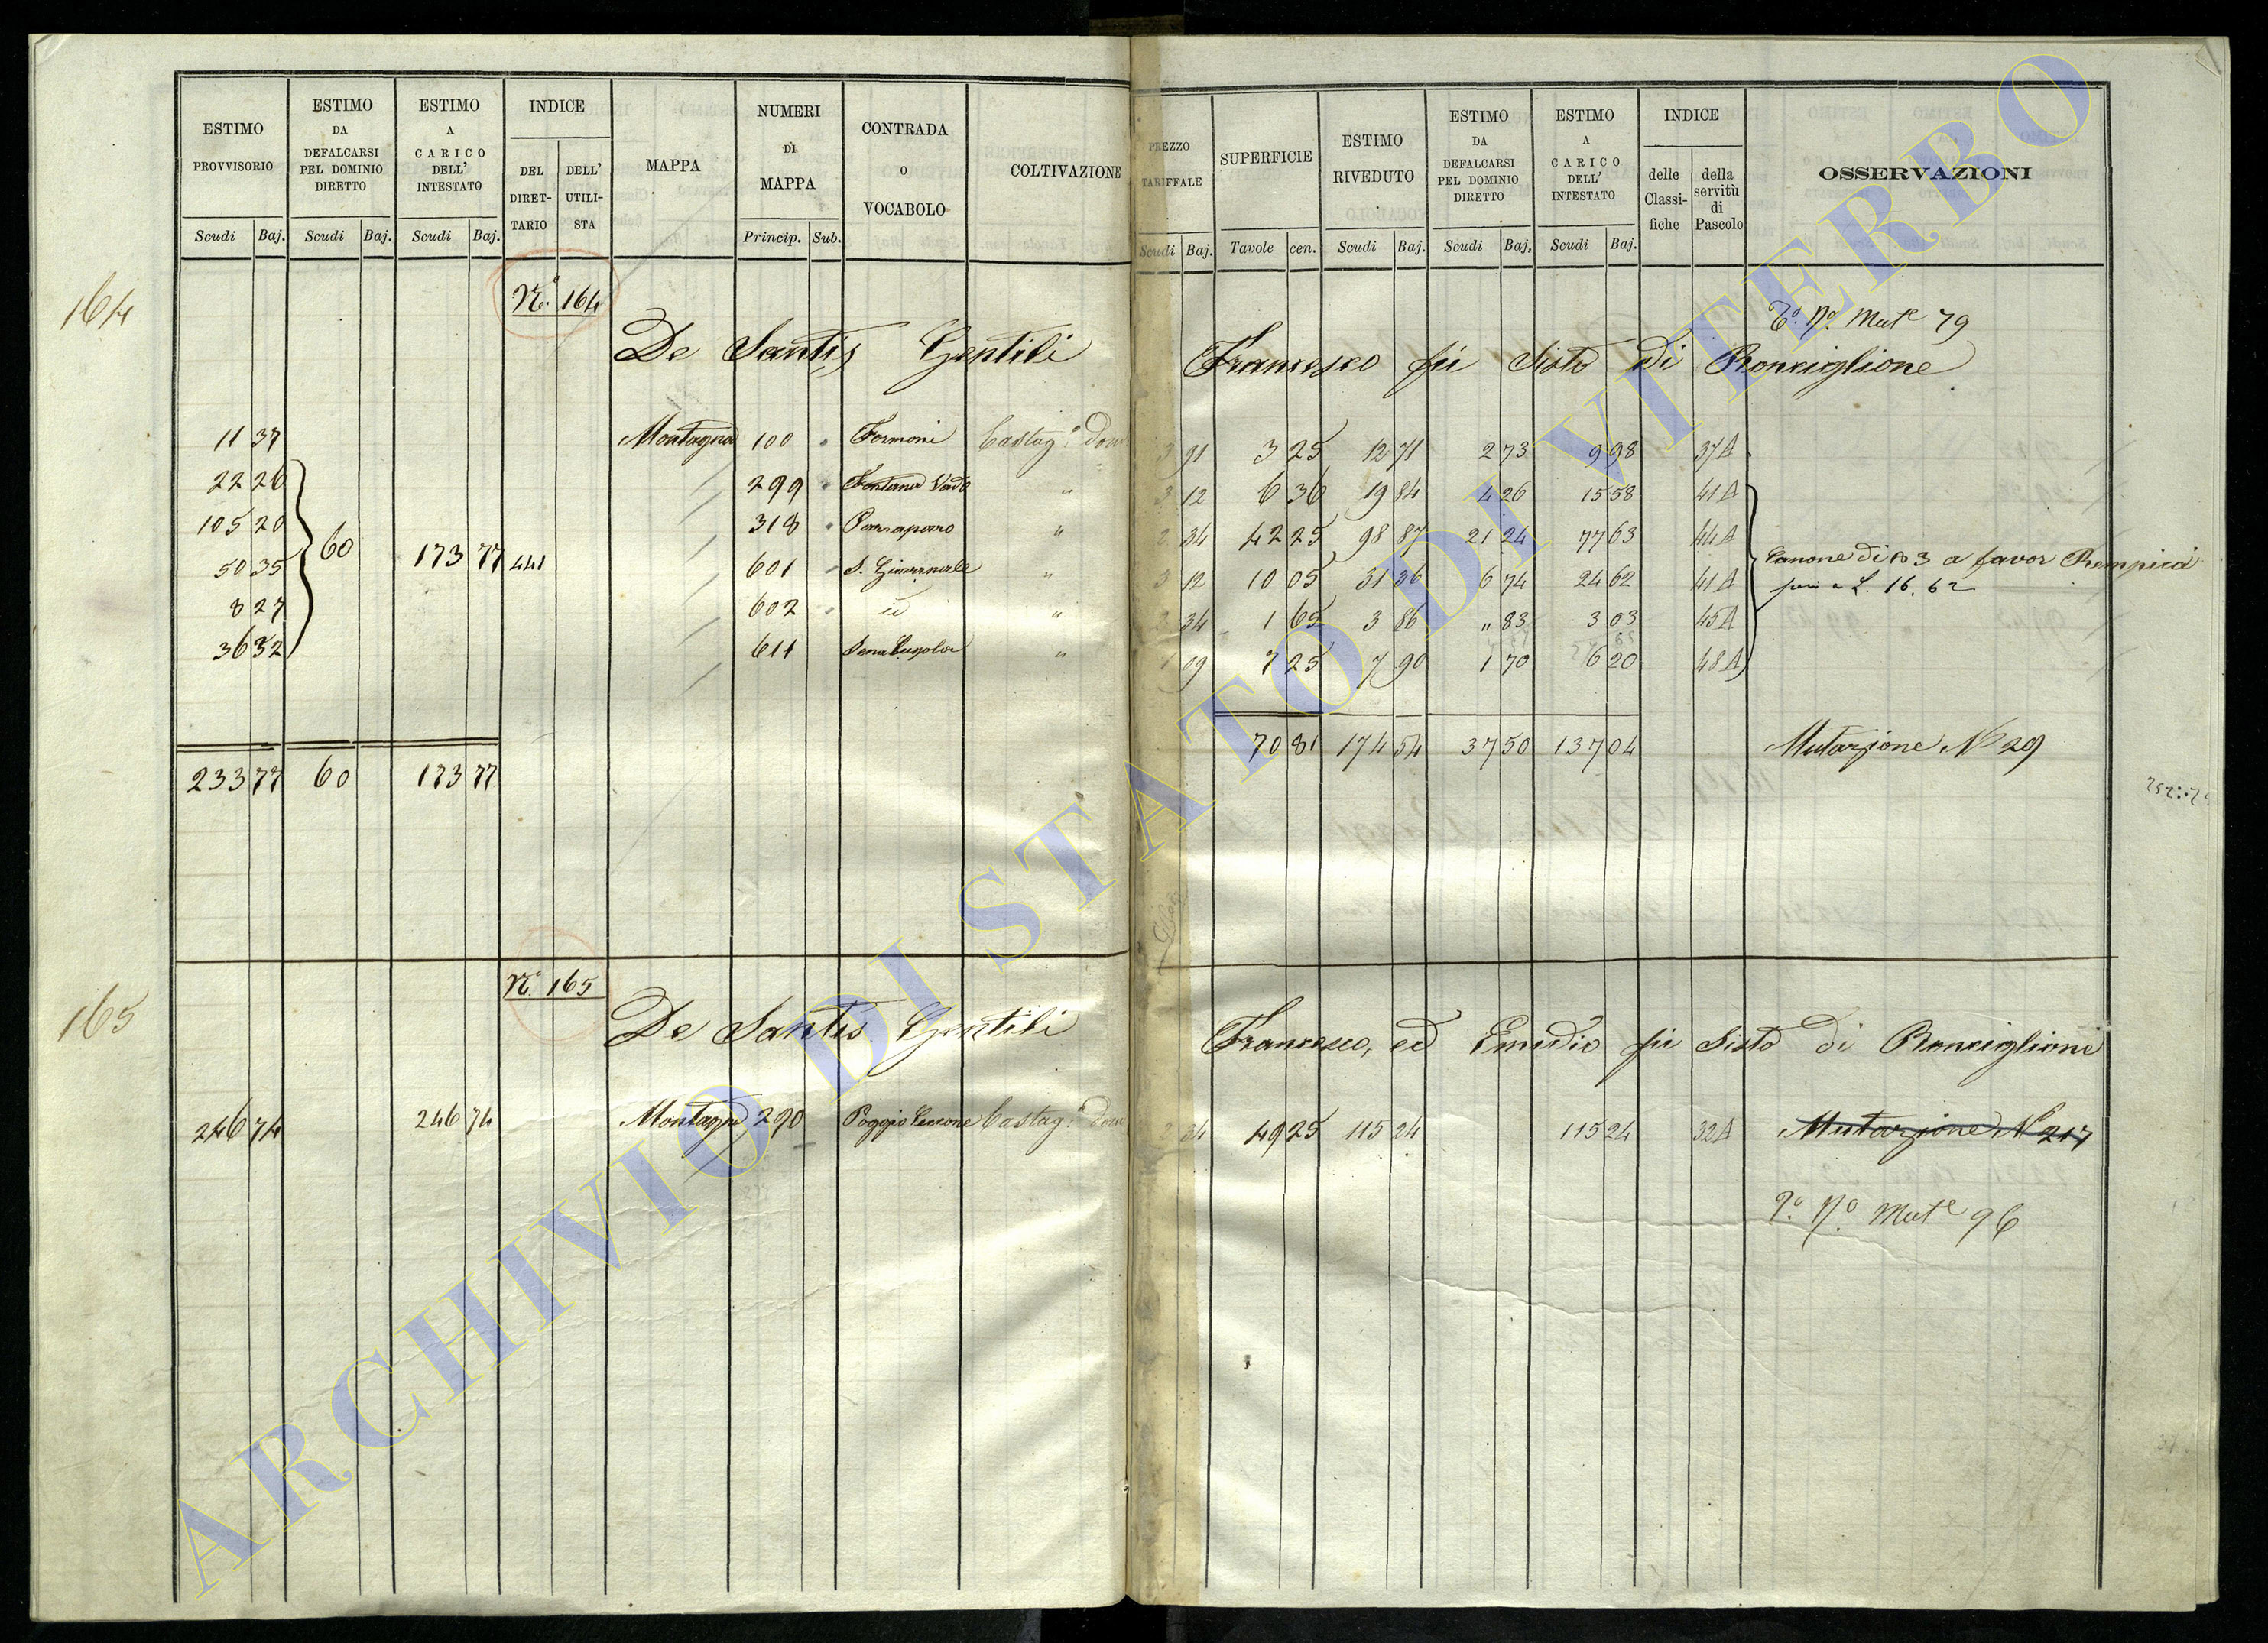 ESTIMO PROVVISORIO
ESTIMO DA DEFALCARSI PEL DOMINIO DIRETTO
ESTIMO A CARICO DELL' INTESTATO
INDICE
DEL DIRET-TARIO
DELL' UTILI-STA
MAPPA
NUMERI DI MAPPA
CONTRADA O VOCABOLO
COLTIVAZIONE
PREZZO TARIFFALE
SUPERFICIE
ESTIMO RIVEDUTO
ESTIMO DA DEFALCARSI PEL DOMINIO DIRETTO
ESTIMO A CARICO DELL' INTESTATO
INDICE
delle Classi-fiche
della servitù di Pascolo
OSSERVAZIONI
Scudi Baj. Scudi Baj. Scudi Baj. Princip. Sub. Scudi Baj. Tavole cen. Scudi Baj. Scudi Baj. Scudi Baj.
164
N.° 164
T.° N.° Mut.e 79
De Santis Gentili Francesco fu Sisto di Ronciglione
11 37 Montagna 100 " Formoni Castag.° Dom 3 91 3 25 12 71 2 73 9 98 37A
22 26 299 " Fontana Vade " 3 12 6 36 19 84 4 26 15 58 41A
105 20 318 " " 2 34 42 25 98 87 21 24 77 63 44A
60 173 77 441
50 35 601 " S. " 3 12 10 05 31 36 6 74 24 62 41A
Canone di 3 a favor Rempici
pari a L. 16.62
8 27 602 " id " 2 34 1 65 3 86 " 83 3 03 45A
36 32 611 " 1 09 7 25 7 90 1 70 6 20 48A
70 81 174 54 37 50 137 04 Mutazione N° 29
233 77 60 173 77
165
N.° 165
De Santis Gentili Francesco, ed Emidio fu Sisto di Ronciglione
246 74 246 74 Montagna 290 Poggio Cerrone Castag.° Dom 2 34 49 25 115 24 115 24 32A Mutazione N° 217
T.° N.° Mut.e 96
ARCHIVIO DI STATO DI VITERBO